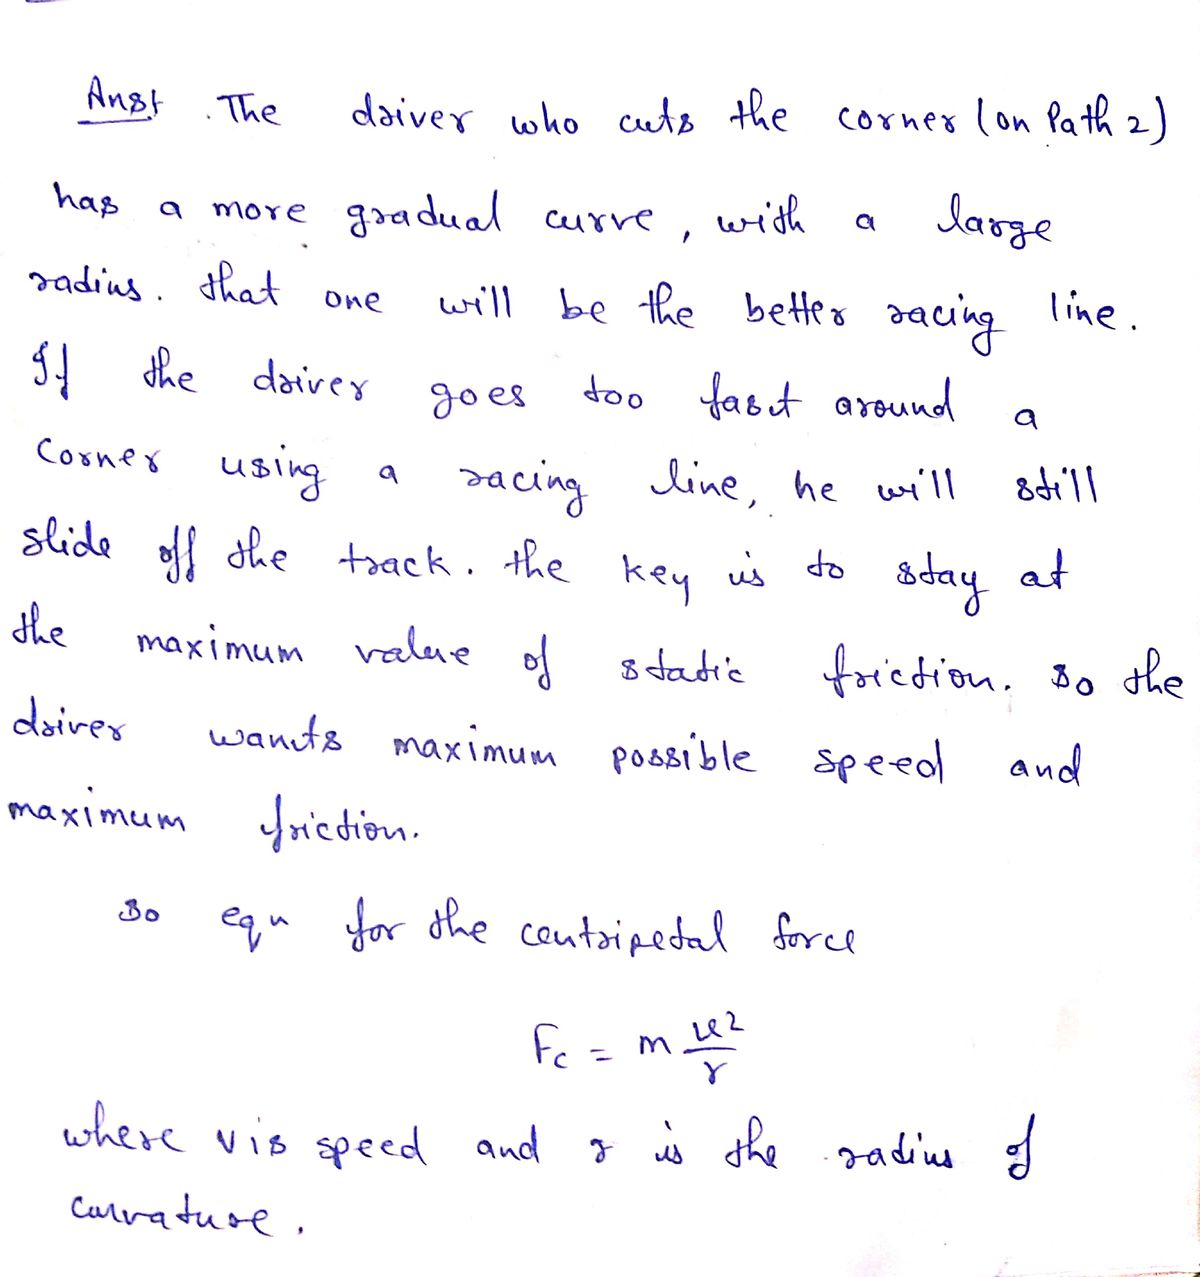 Ans: The driver who cuts the corner (on Path 2)
has a more gradual curve, with a large
radius. that one will be the better racing line.
If the driver goes too fast around a
Corner using a racing line, he will still
slide off the track. the key is to stay at
the maximum value of static friction. so the
driver wants maximum possible speed and
maximum friction.
so equ for the centripetal force
Fc = m v²/r
where v is speed and r is the radius of
curvature.